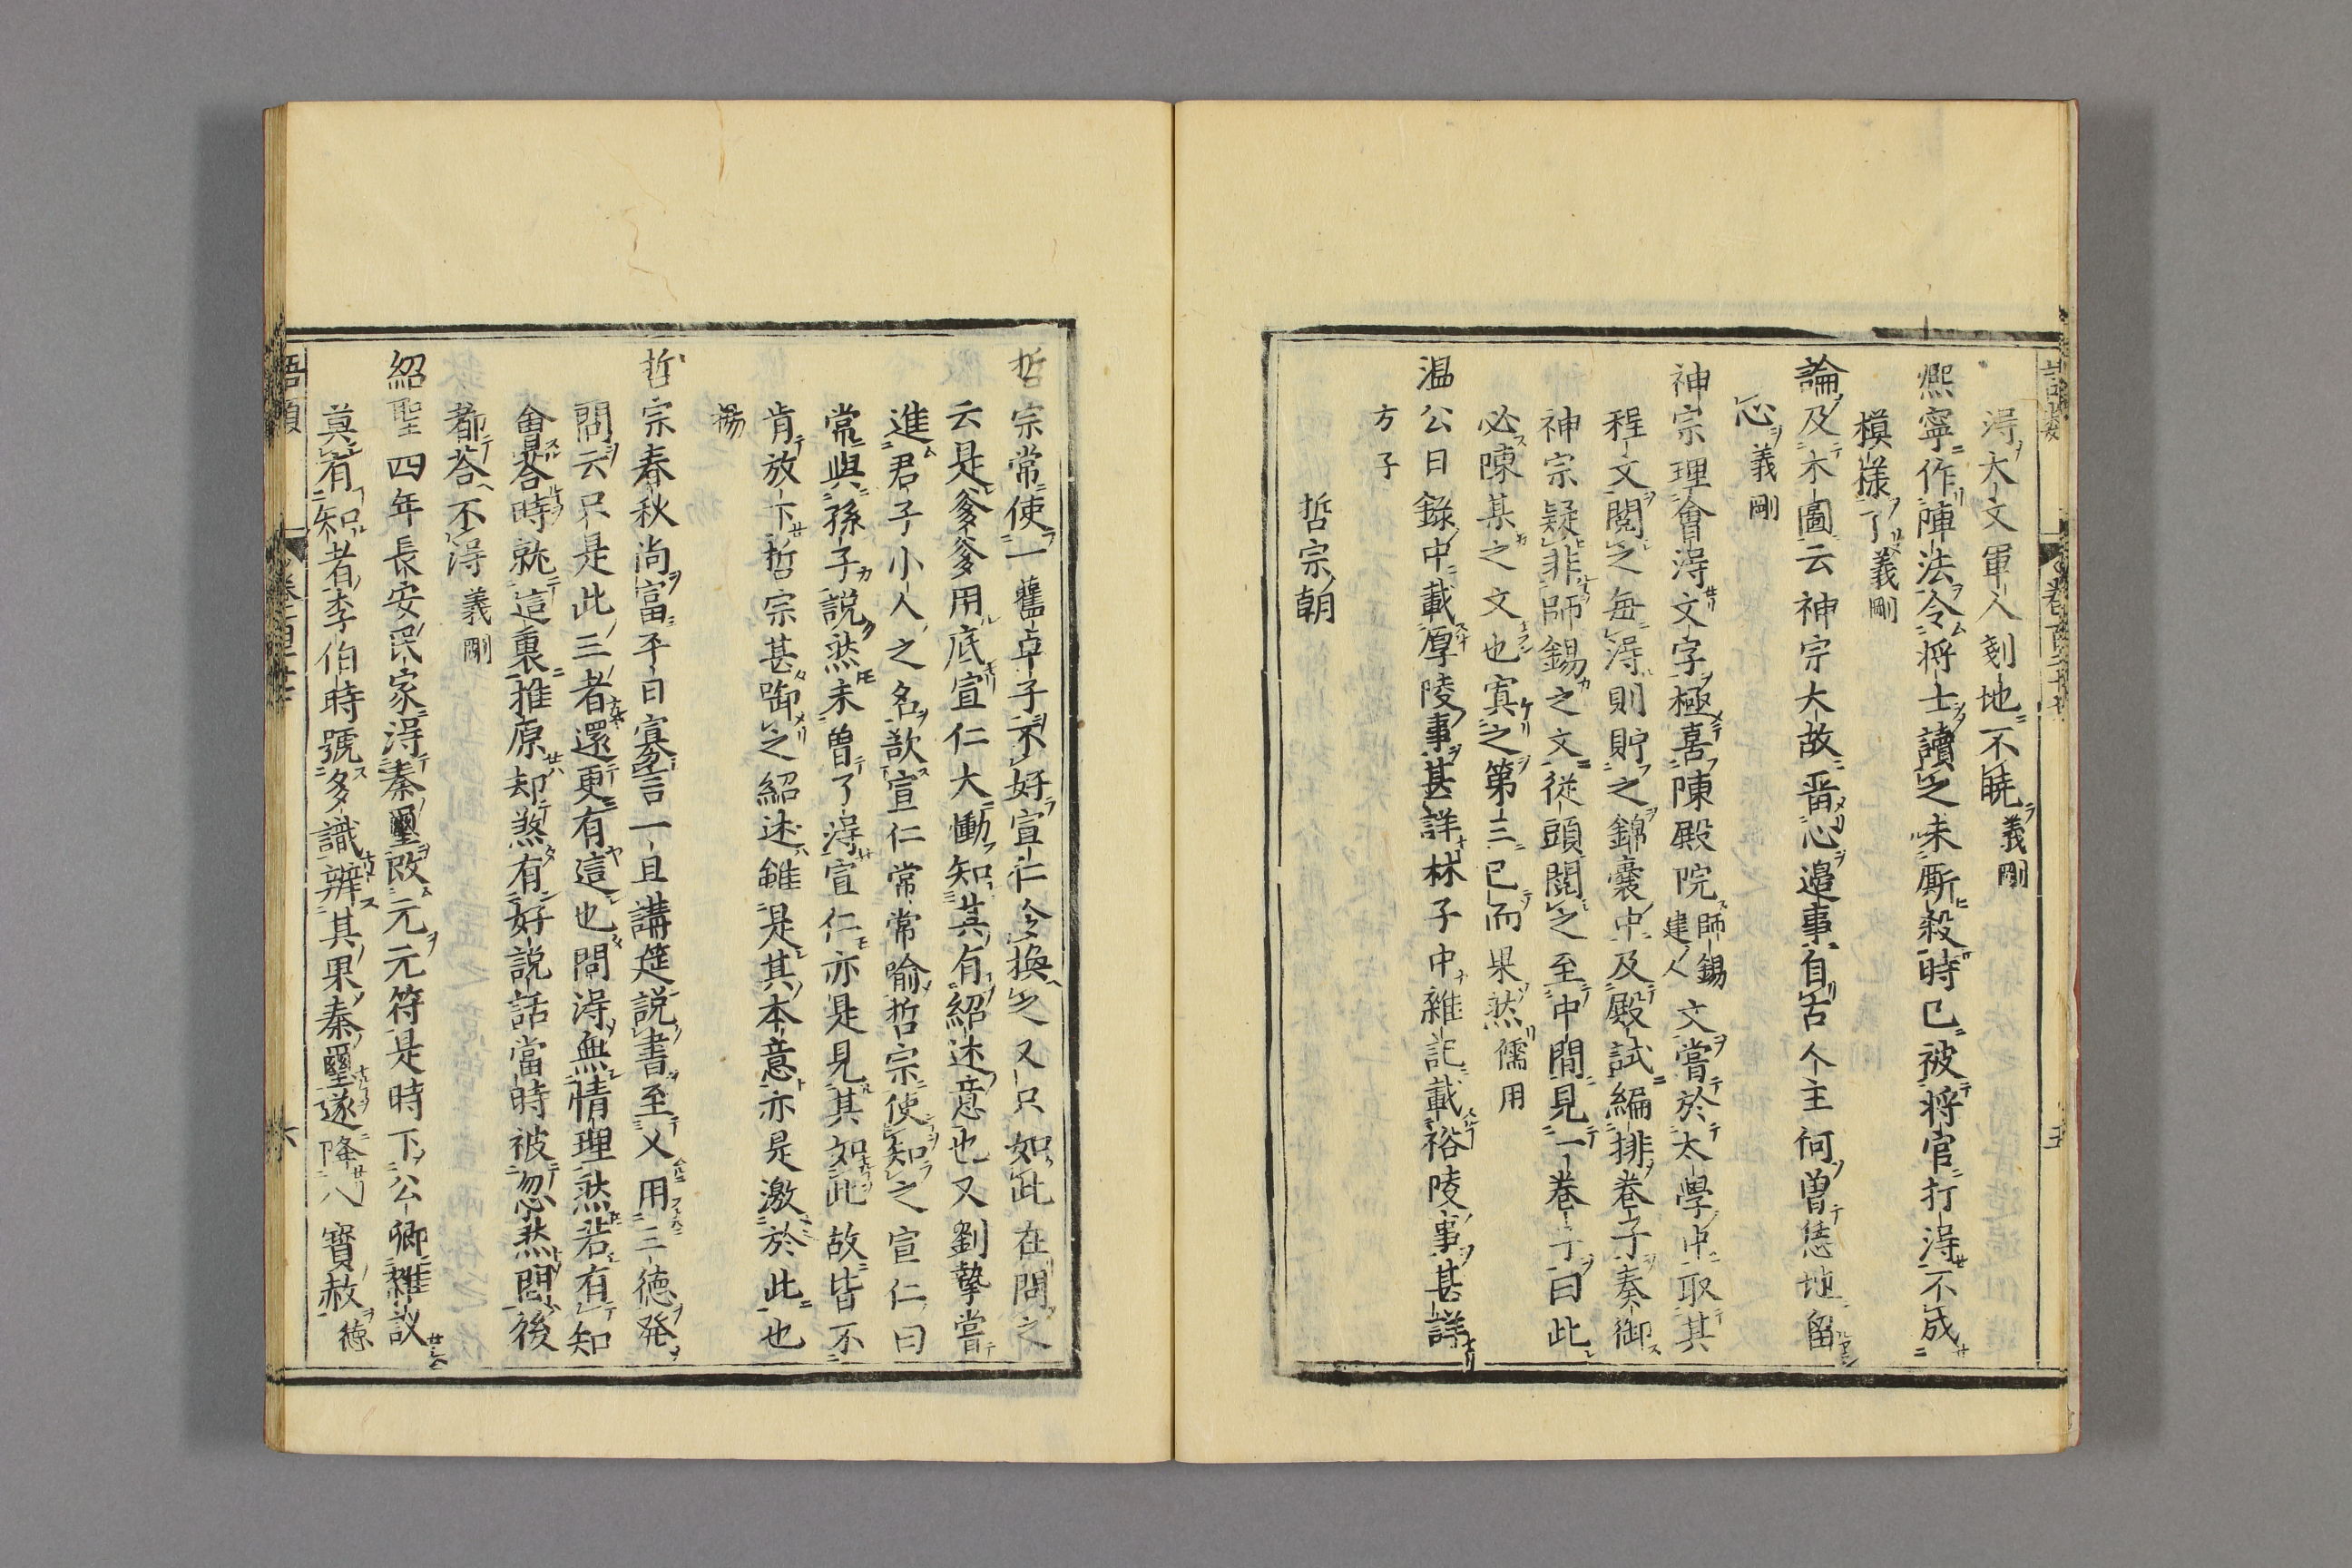 得太文軍人刻地不曉義剛
熙寧作陣法令將士讀之未厮殺時已被將官打得不成
模樣了義剛
論及木圖云神宗大故畱心邉事自古人主何曾恁地留
心義剛
神宗理會得文字極喜陳殿院師錫建人文嘗於太學中取其
程文閲之每得則貯之錦囊中及殿試編排卷子奏御
神宗疑非師錫之文從頭閲之至中間見一卷子曰此
必陳某之文也寘之第三已而果然儒用
温公日錄中載厚陵事甚詳林子中雜記載裕陵事甚詳
方子
哲宗朝
哲宗常使一舊卓子不好宣仁令換之又只如此在問之
云是爹爹用底宣仁大慟知其有紹述意也又劉摯嘗
進君子小人之名欲宣仁常常喻哲宗使知之宣仁曰
常與孫子說然未曾了得宣仁亦是見其如此故皆不
肯放下哲宗甚啣之紹述雖是其本意亦是激於此也
揚
哲宗春秋尚富平日寡言一旦講筵說書至乂用三德發
問云只是此三者還更有這也問得無情理然若有知
畣荅時就這裏推原却煞有好說話當時被忽然問後
都荅不得義剛
紹聖四年長安民家得秦璽改元元符是時下公卿雜議
莫有知者李伯時號多識辨其果秦璽遂降八寶赦德
語類
卷百二十七
六